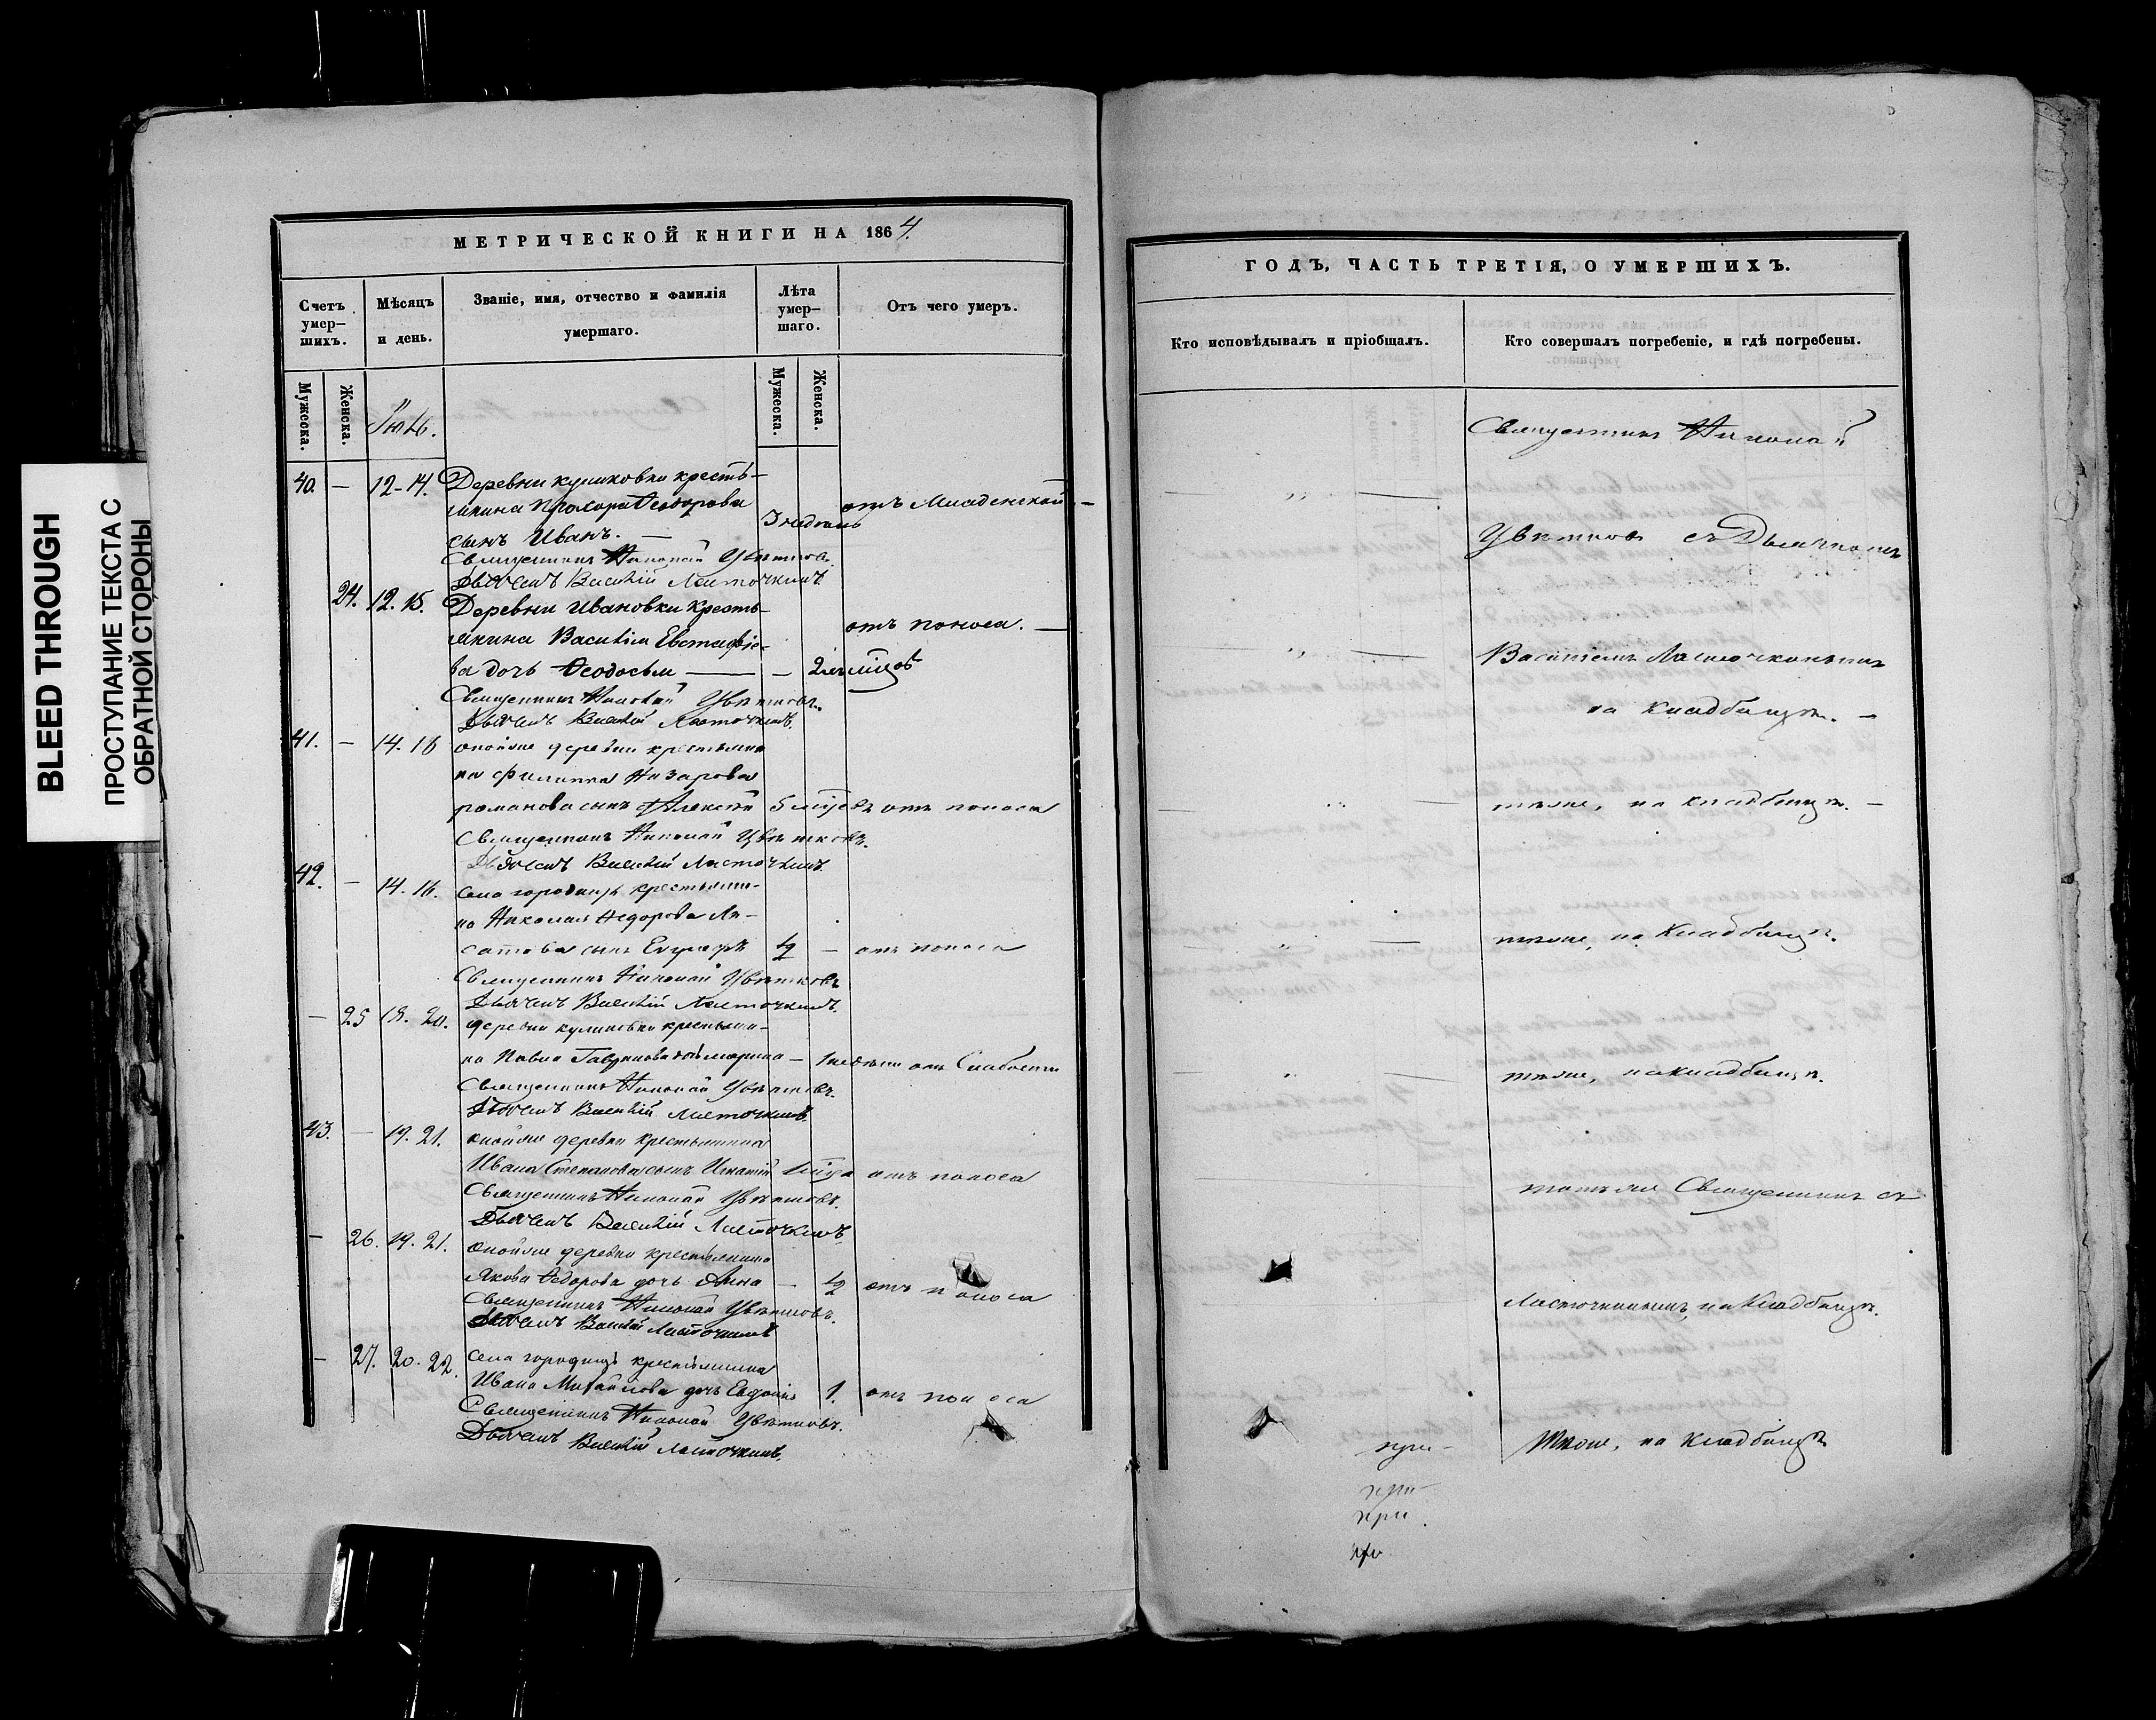 BLEED THROUGH
ПРОСТУПАНИЕ ТЕКСТА С
ОБРАТНОЙ СТОРОНЫ
МЕТРИЧЕСКОЙ КНИГИ НА 1864.
Счетъ умер–шихъ.
Мѣсяцъ и день.
Званіе, имя, отчество и фамилія умершаго.
Лѣта умер–шаго.
Отъ чего умеръ.
Мужеска.
Женска.
Мужеска.
Женска.
40. — 12-14. Деревни куликовки кресть–
янина Прохора Ѳеодорова отъ Младенской —
сынъ Иванъ. — 3 недѣль
Священникъ Николай Цвѣтковъ.
Дьячекъ Василій Ласточкинъ.
24. 12. 15. Деревни Ивановки кресть–
янина Василія Евстафіе– отъ поноса. —
ва дочь Ѳеодосья — — 2 мѣсяцовъ
Священникъ Николай Цвѣтковъ.
Дьячекъ Василій Ласточкинъ.
41. — 14. 16 оной же деревни крестьяни
на Филиппа Назарова
романова сынъ Алексѣй 5 мѣсяцевъ отъ поноса
Священникъ Николай Цвѣтковъ.
Дьячекъ Василій Ласточкинъ.
42. — 14. 16. села городищъ крестьяни–
на Николая Ѳедорова
сынъ Евграфъ ½ — отъ поноса
Священникъ Николай Цвѣтковъ
Дьячекъ Василій Ласточкинъ.
— 25 18. 20. деревни куликовки крестьяни–
на Павла Гаврилова дочь марина — 1 недѣли отъ Слабости
Священникъ Николай Цвѣтковъ.
Дьячекъ Василій Ласточкинъ.
43. — 19. 21. оной же деревни крестьянина
Ивана Степанова сынъ Игнатій отъ поноса
Священникъ Николай Цвѣтковъ.
Дьячекъ Василій Ласточкинъ.
— 26. 19. 21. оной же деревни крестьянина
Якова Ѳедорова дочь Анна — ½ отъ поноса
Священникъ Николай Цвѣтковъ.
Дьячекъ Василій Ласточкинъ
— 27. 20. 22. села городищъ крестьянина
Ивана Михайлова дочь Евдокія 1. отъ поноса
Священникъ Николай Цвѣтковъ.
Дьячекъ Василій Ласточкинъ.
ГОДЪ, ЧАСТЬ ТРЕТІЯ, О УМЕРШИХЪ.
Кто исповѣдывалъ и пріобщалъ.
Кто совершалъ погребеніе, и гдѣ погребены.
Священникъ Николай
Цвѣтковъ съ Дьячкомъ
Василіемъ Ласточкинымъ
на кладбищѣ. —
тѣже, на кладбищѣ. —
тѣже, на кладбищѣ.
тѣже, на кладбищѣ.
тотъ же Священникъ съ
Ласточкинымъ, на кладбищѣ.
тѣже, на кладбищѣ
при–
при
при.